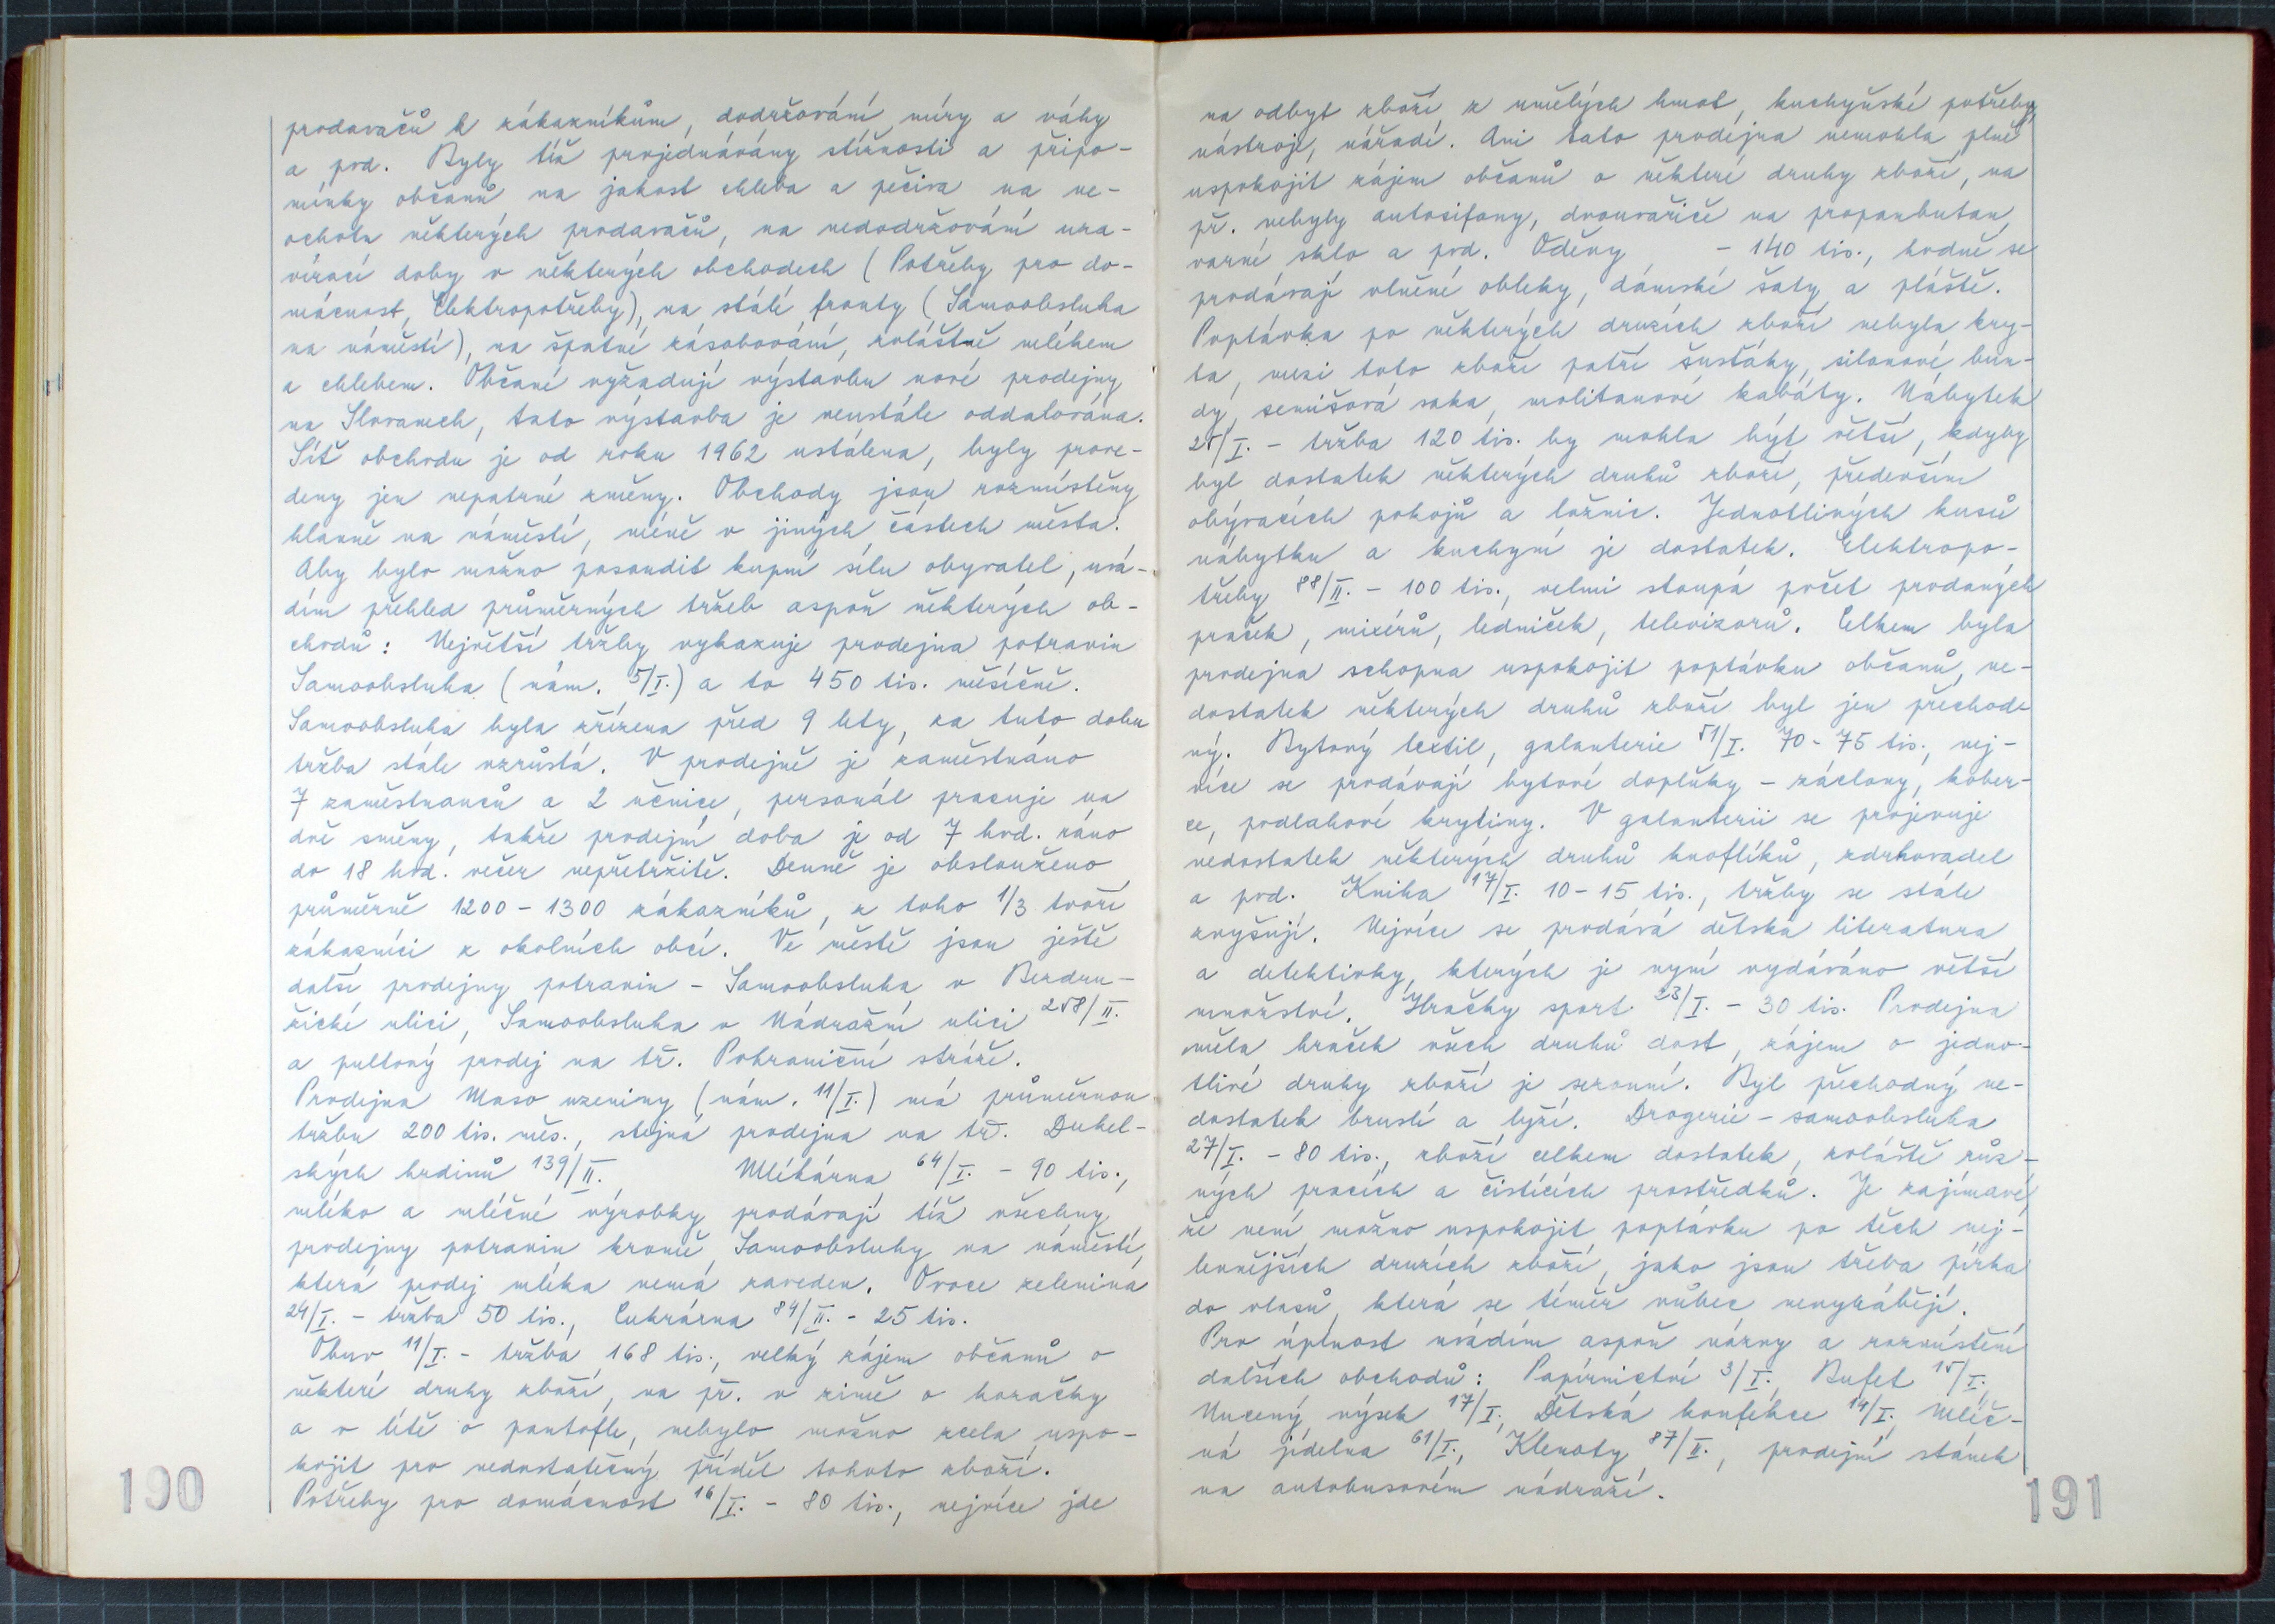 prodavačů k zákazníkům, dodržování míry a váhy
a pod. Byly též projednávány stížnosti a připo-
mínky občanů na jakost chleba a pečiva na ne-
ochotu některých prodavačů, na nedodržování uza-
vírací doby v některých obchodech (Potřeby pro do-
mácnost, Elektropotřeby), na stálé fronty (Samoobsluha
na náměstí), na špatné zásobování, zvláštně mlékem
a chlebem. Občané vyžadují výstavbu nové prodejny
na Slovanech, tato výstavba je neustále oddalována.
Síť obchodu je od roku 1962 ustálena, byly prove-
deny jen nepatrné změny. Obchody jsou rozmístěny
hlavně na náměstí, méně v jiných částech města.
Aby bylo možno posoudit kupní sílu obyvatel, uvá-
dím přehled průměrných tržeb aspoň některých ob-
chodů: Největší tržby vykazuje prodejna potravin
Samoobsluha (nám. 5/I.) a to 450 tis. měsíčně.
Samoobsluha byla zřízena před 9 lety, za tuto dobu
tržba stále vzrůstá. V prodejně je zaměstnáno
7 zaměstnanců a 2 učnice, personál pracuje na
dvě směny, takže prodejní doba je od 7 hod. ráno
do 18 hod. večer nepřetržitě. Denně je obslouženo
průměrně 1200 - 1300 zákazníků, z toho 1/3 tvoří
zákazníci z okolních obcí. Ve městě jsou ještě
další prodejny potravin - Samoobsluha v Bezdru-
žické ulici, Samoobsluha v Nádražní ulici 258/II.
a pultový prodej na tř. Pohraniční stráže.
Prodejna Maso uzeniny (nám. 11/I.) má průměrnou
tržbu 200 tis. měs., stejná prodejna na tř. Dukel-
ských hrdinů 139/II. Mlékárna 64/I. - 90 tis.,
mléko a mléčné výrobky prodávají též všechny
prodejny potravin kromě Samoobsluhy na náměstí,
která prodej mléka nemá zaveden. Ovoce zelenina
24/I. - tržba 50 tis., Cukrárna 84/II. - 25 tis.
Obuv 11/I. - tržba 168 tis., velký zájem občanů o
některé druhy zboží, na př. v zimě o kozačky
a v létě o pantofle, nebylo možno zcela uspo-
kojit pro nedostatečný příděl tohoto zboží.
Potřeby pro domácnost 16/I. - 80 tis., nejvíce jde
190
na odbyt zboží z umělých hmot, kuchyňské potřeby,
nástroje, nářadí. Ani tato prodejna nemohla plně
uspokojit zájem občanů o některé druhy zboží, na
př. nebyly autosifony, dvouvařiče na propanbutan,
varné sklo a pod. Oděvy - 140 tis., hodně se
prodávají vlněné obleky, dámské šaty a pláště.
Poptávka po některých druzích zboží nebyla kry-
ta, mezi toto zboží patří šusťáky, silonové bun-
dy, semišová saka, molitanové kabáty. Nábytek
25/I. - tržba 120 tis. by mohla být větší, kdyby
byl dostatek některých druhů zboží, především
obývacích pokojů a ložnic. Jednotlivých kusů
nábytku a kuchyní je dostatek. Elektropo-
třeby 88/II. - 100 tis., velmi stoupá počet prodaných
praček, mixérů, ledniček, televizorů. Celkem byla
prodejna schopna uspokojit poptávku občanů, ne-
dostatek některých druhů zboží byl jen přechod-
ný. Bytový textil, galanterie 51/I. 70 - 75 tis., nej-
více se prodávají bytové doplňky - záclony, kober-
ce, podlahové krytiny. V galanterii se projevuje
nedostatek některých druhů knoflíků, zdrhovadel
a pod. Kniha 17/I. 10 - 15 tis., tržby se stále
zvyšují. Nejvíce se prodává dětská literatura
a detektivky, kterých je nyní vydáváno větší
množství. Hračky sport 23/I. - 30 tis. Prodejna
měla hraček všech druhů dost, zájem o jedno-
tlivé druhy zboží je sezonní. Byl přechodný ne-
dostatek bruslí a lyží. Drogerie - samoobsluha
27/I. - 80 tis., zboží celkem dostatek, zvláště růz-
ných pracích a čistících prostředků. Je zajímavé,
že není možno uspokojit poptávku po těch nej-
levnějších druzích zboží, jako jsou třeba pírka
do vlasů, která se téměř vůbec nevyrábějí.
Pro úplnost uvádím aspoň názvy a rozmístění
dalších obchodů: Papírnictví 3/I., Bufet 15/I.,
Nucený výsek 17/I., Dětská konfekce 14/I., Mléč-
ná jídelna 61/I., Klenoty 87/II., prodejní stánek
na autobusovém nádraží.
191